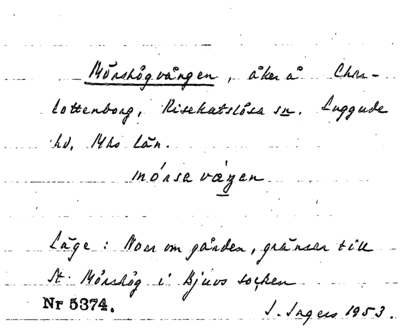 Mörshögvången, åker å Char-
lottenborg, Risekatslösa sn. Luggude
hd, Mhs län.
mórsa våŋen
Läge: Norr om gården, gränsar till
St. Mörshög i Bjuvs socken
Nr 5374.
I. Ingers 1953.